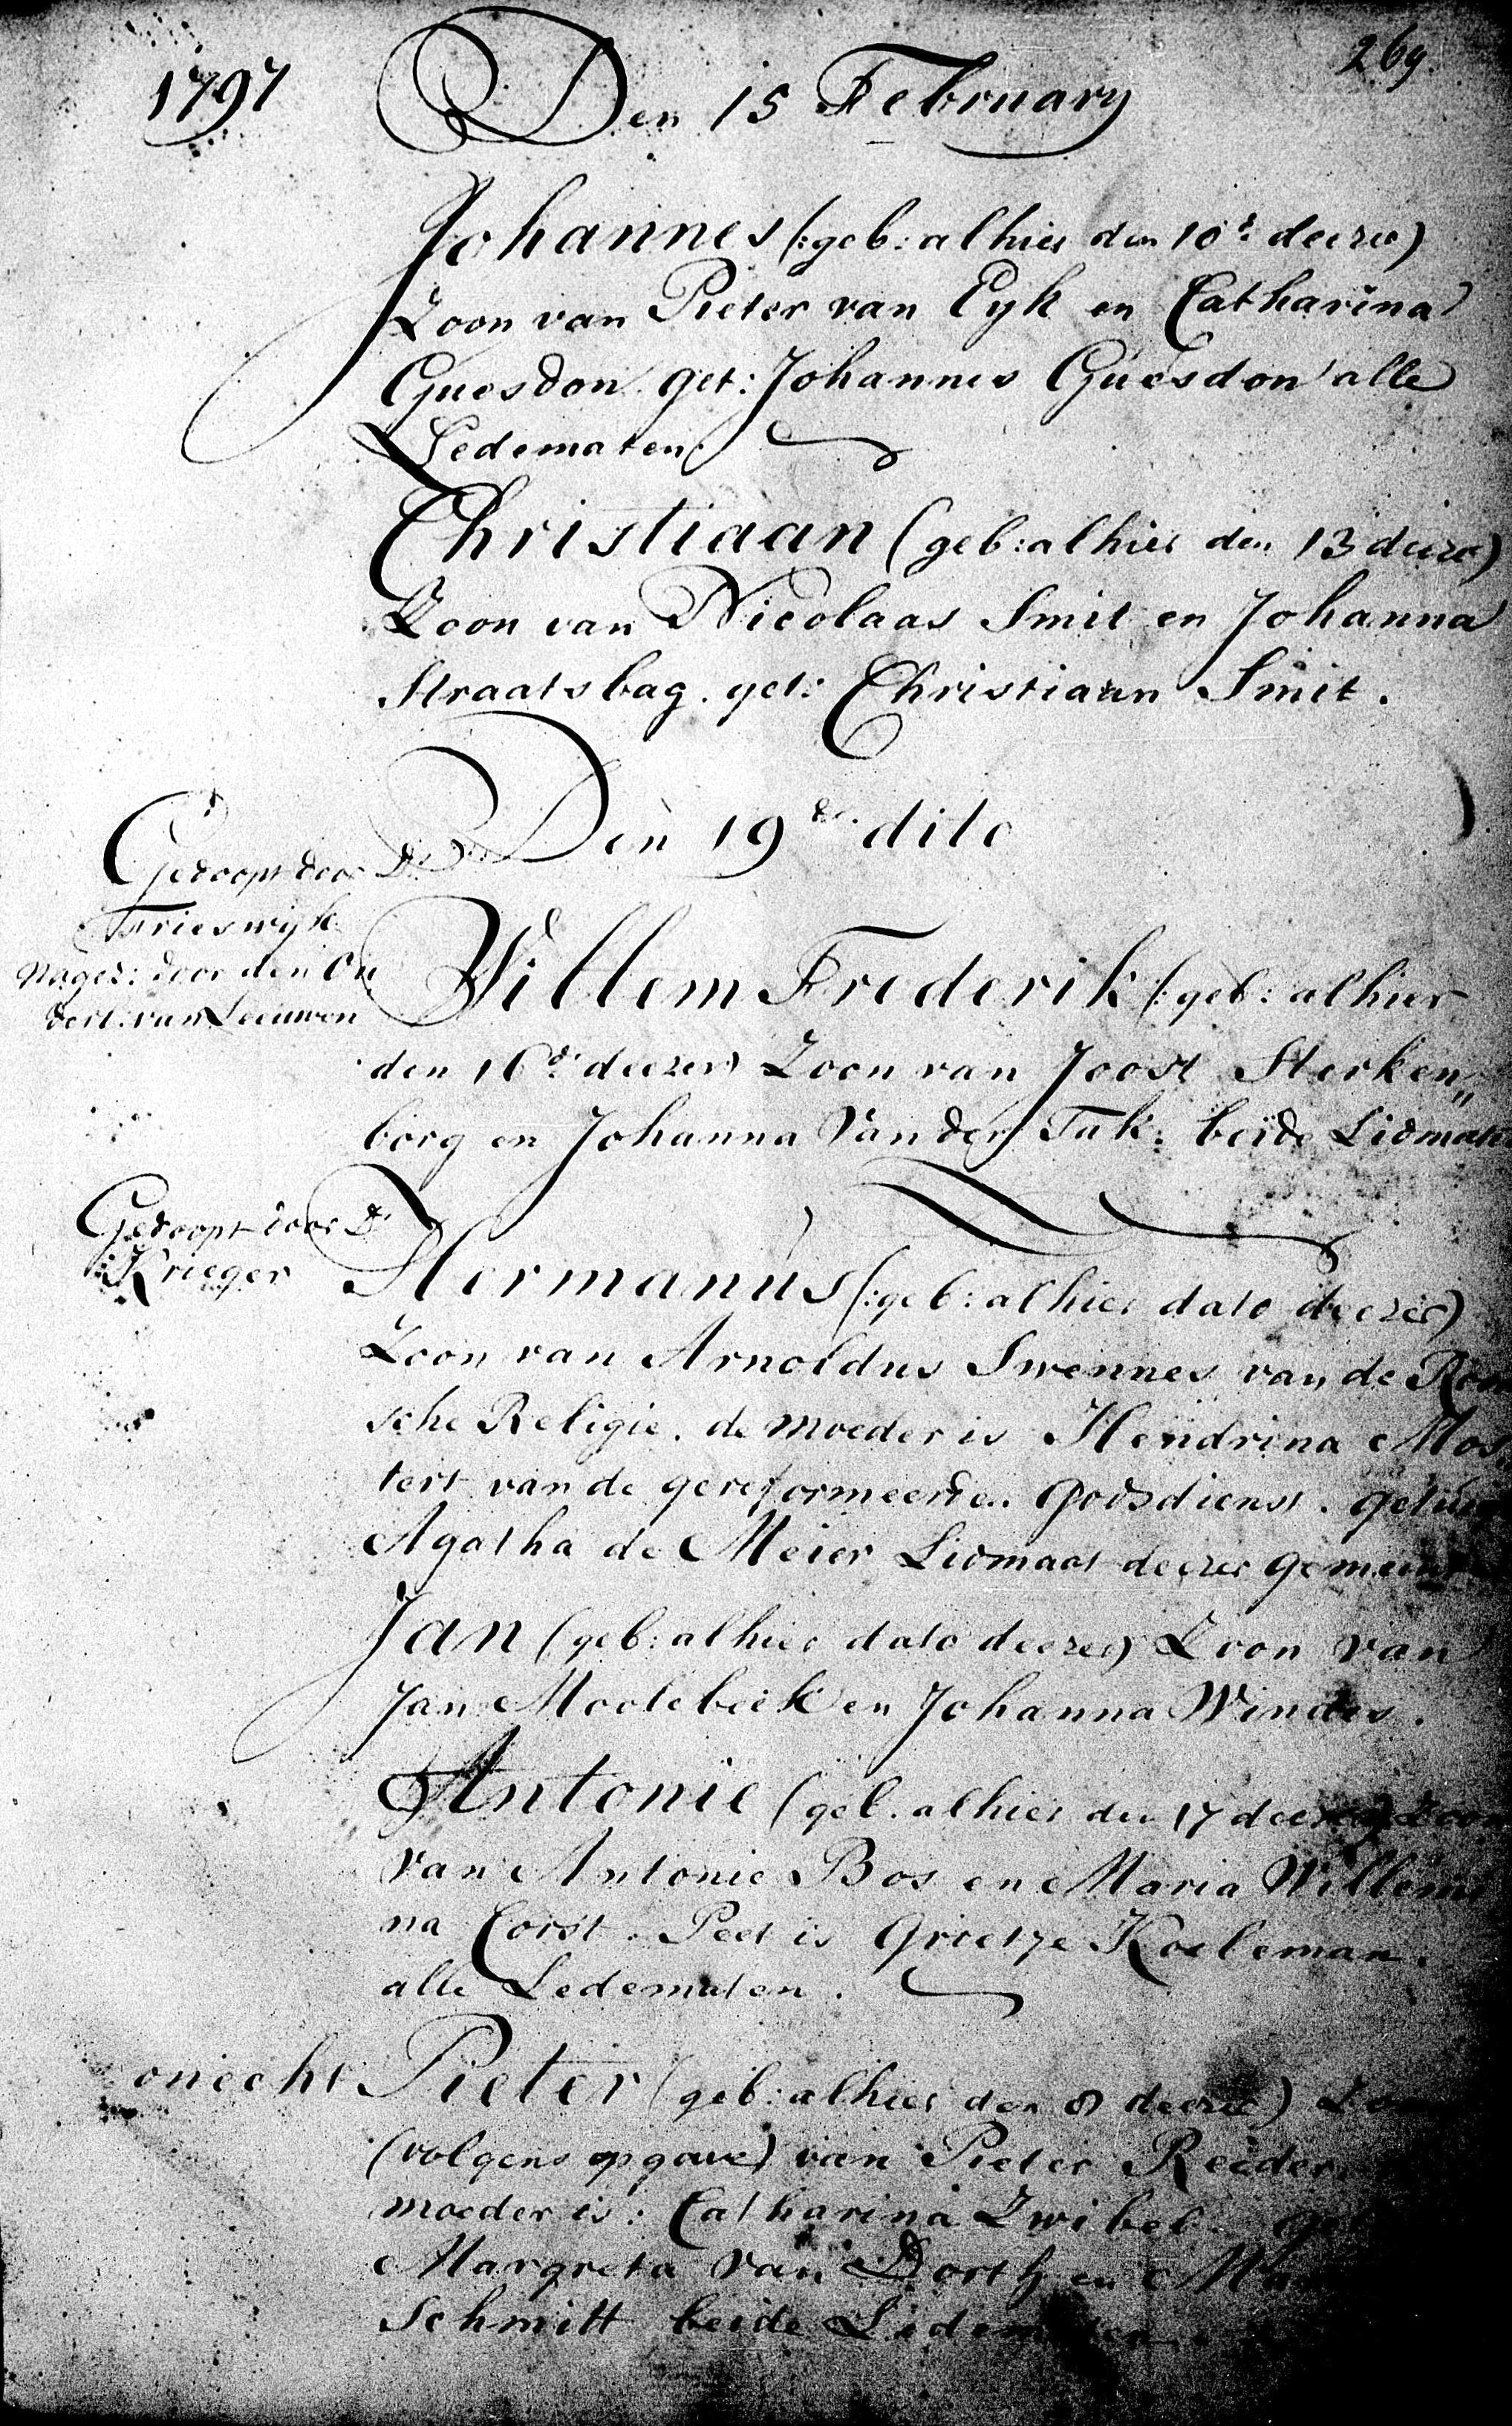 1797
Den 15 February
269.
Johannes (:geb: alhier den 10e deezer)
Zoon van Pieter van Eyk en Catharina
Guesdon get: Johannes Guesdon alle
Ledematen
Christiaan (geb: alhier den 13 deezer)
Zoon van Nicolaas Smit en Johanna
Straatsbag. get: Christiaan Smit.
Den 19de dito
Gedoopt door Ds
Frieswijk
Naged: door den Ou
derl: van Leeuwen
Willem Frederik (:geb: alhier
den 16de deezer) Zoon van Joost Sterken„
borg en Johanna Van der Tak: beide Lidmaten
Gedoopt door Ds
Krieger
Hermanus (:geb: alhier dato deezer)
Zoon van Arnoldus Swennes van de Room
sche Religie. de moeder is Hendrina Mos„
tert van de gereformeerden Godsdienst. getuige
Agatha de Meier Lidmaat deezer gemeente
Jan (geb: alhier dato deezer) Zoon van
Jan Moolebeek en Johanna Winders.
Antonie (geb. alhier den 17 deezer) Zoon
van Antonie Bos en Maria Willemi
na Corst. Peet is Grietje Koeleman.
alle Ledematen.
onecht
Pieter (geb: alhier den 8 deezer) Zoon
(volgens opgave) van Pieter Reeder
moeder is: Catharina Zwibel. get
Margreta van Dorth en
Schmitt beide Ledematen